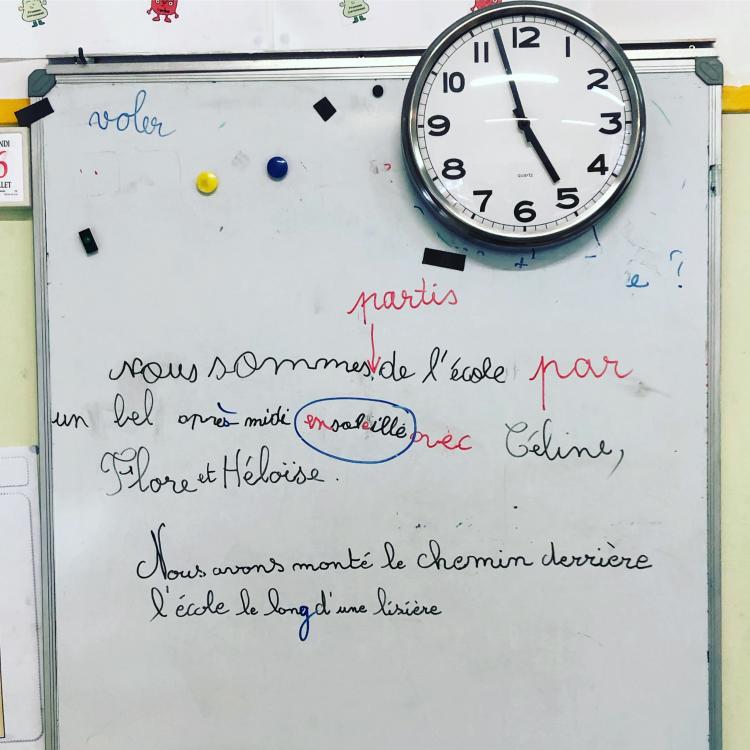 12
1
2
3
4
5
6
7
8
9
10
11
quartz
NDI
6
LLET
voler
e ?
partis
nous sommes de l'école par
un bel après midi ensoleillé avec Céline,
Flore et Héloïse.
Nous avons monté le chemin derrière
l'école le long d'une lisière